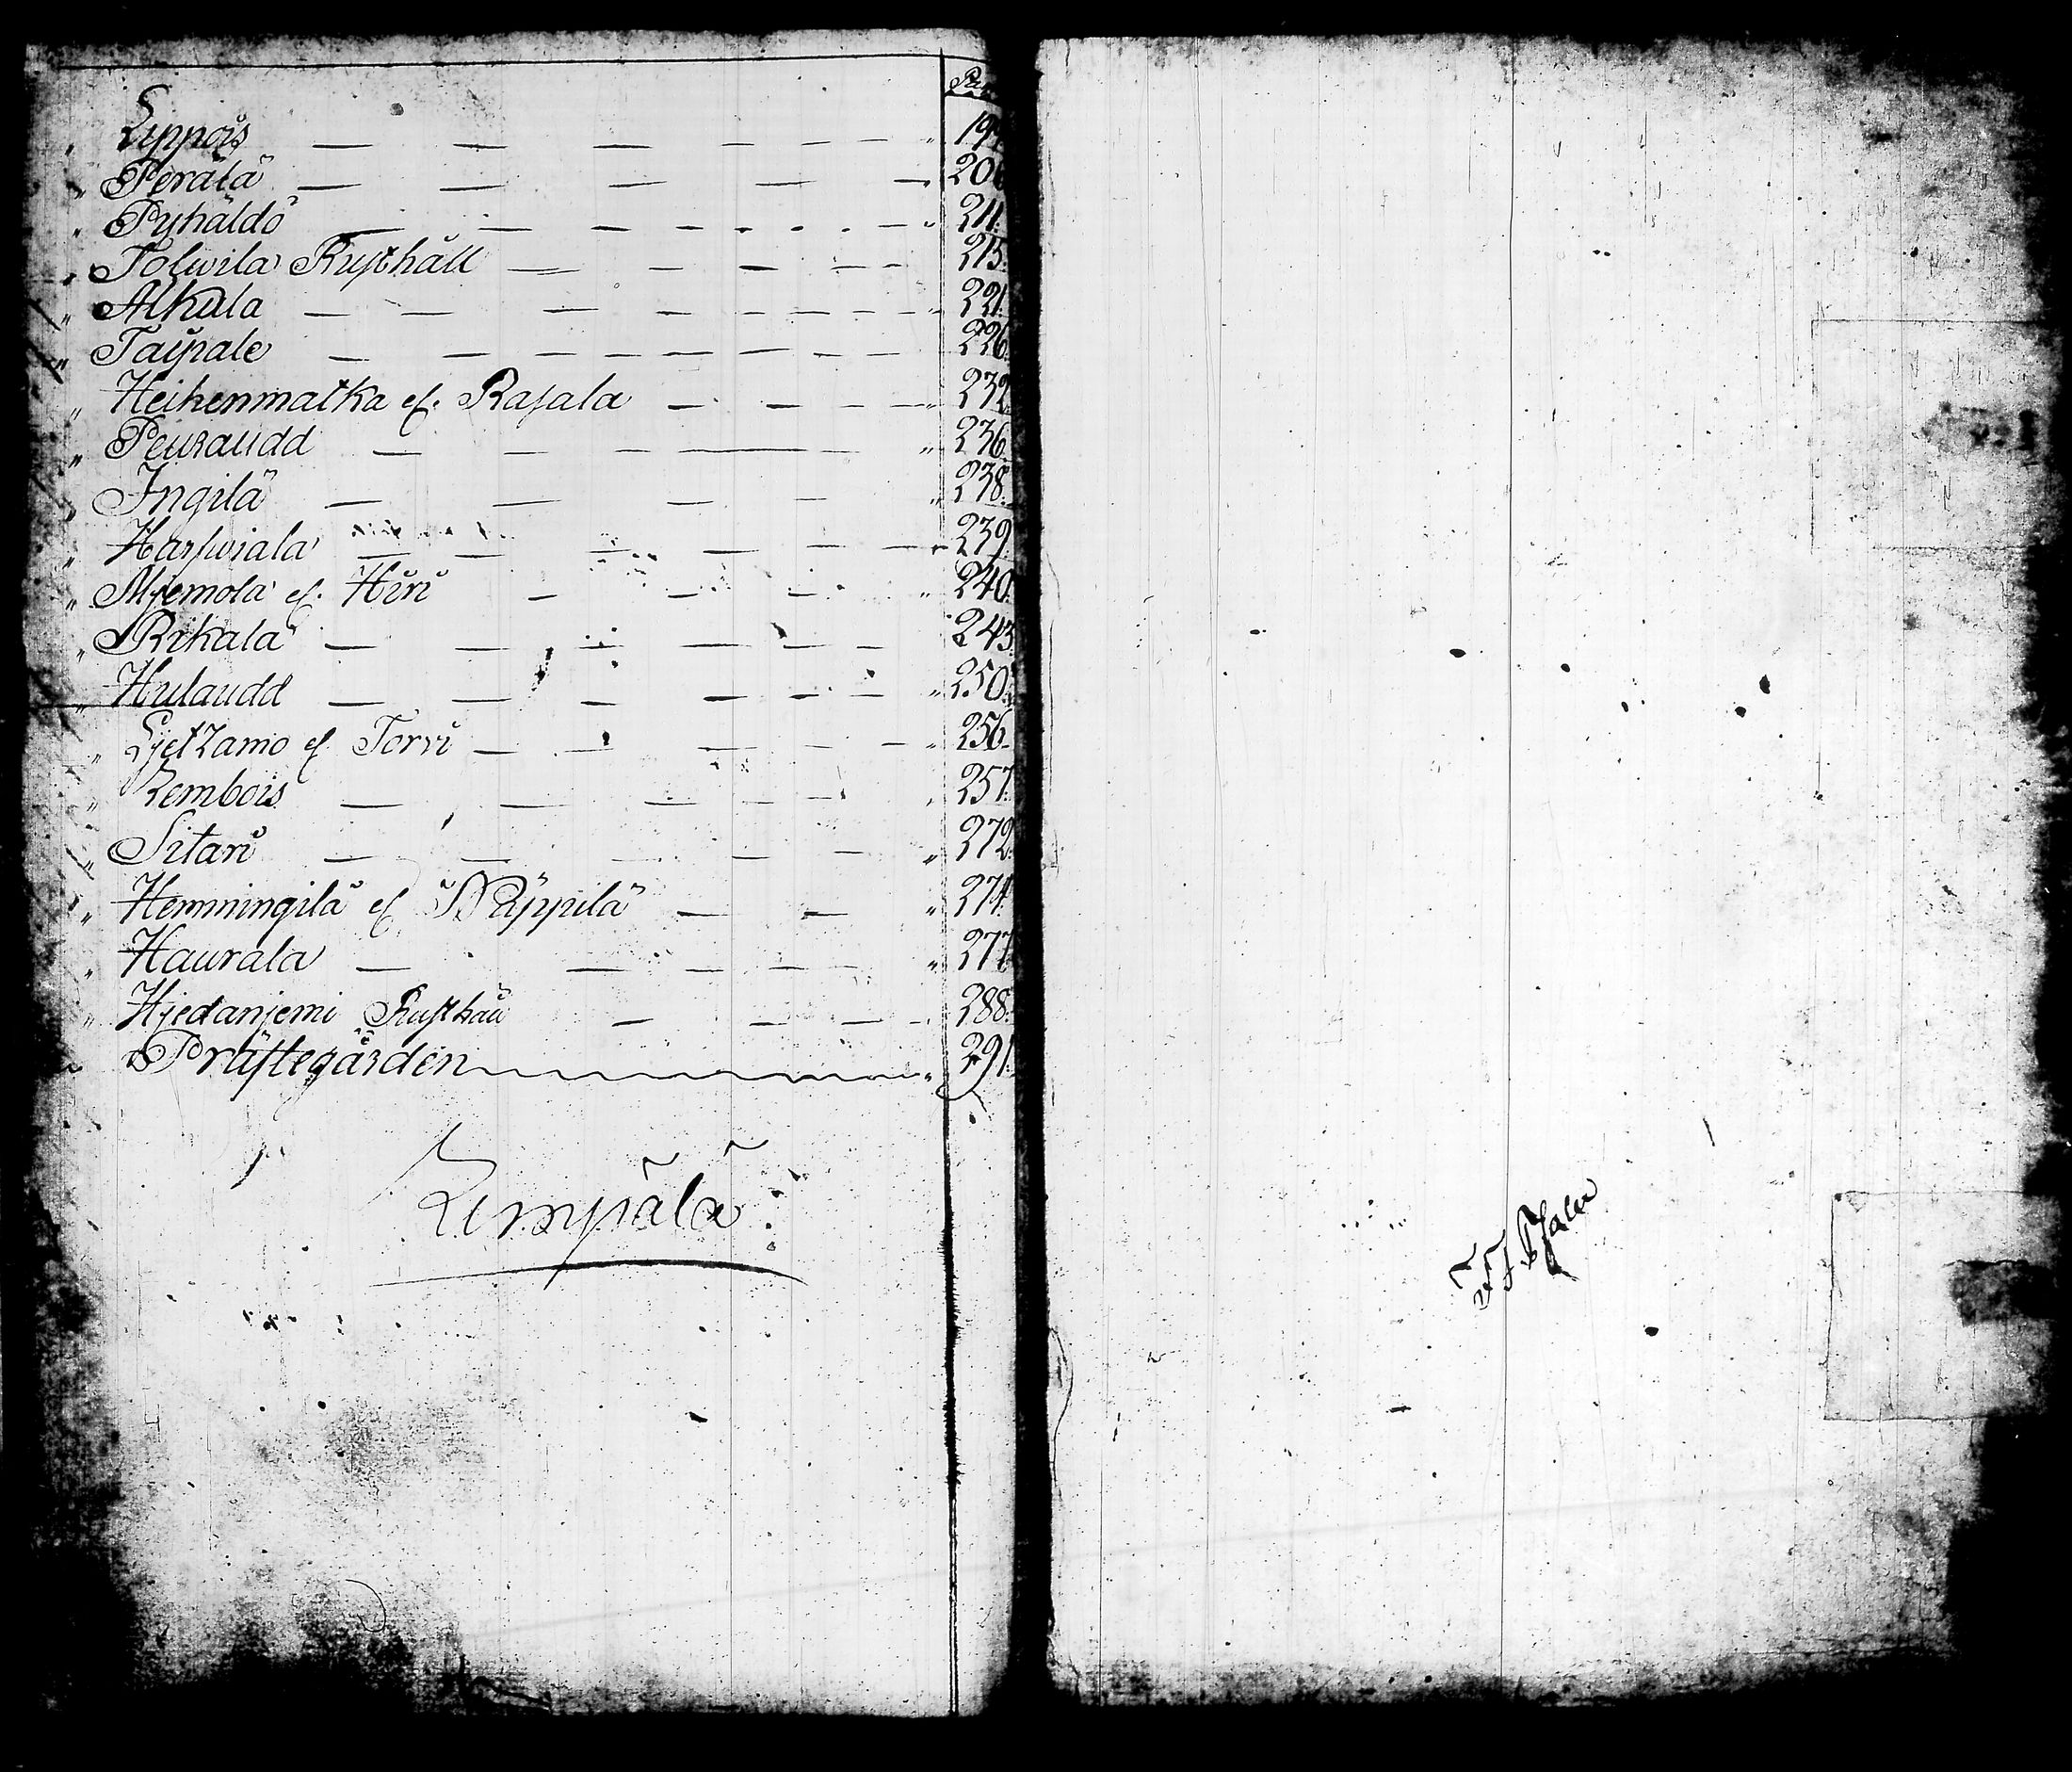 Lippois 199
Perälä 206
Pyhäldö 211.
Tolwila Rusthåll 215.
Alkula 221.
Taipale 226.
Heikenmatka el. Rasala 232
Peuraudd 236.
Ingilä 238.
Harswiala 239.
Mjemola el. Hiri 240.
Rikala 243.
Hulaudd 250.
Ljetzamo el. Torvi 256.
Lembois 257.
Sitari 272.
Hemmingilä el. Päppilä 274.
Haurala 277
Hjedanjemi Rusthåll 288.
Prästegården 291.
Lempälä.